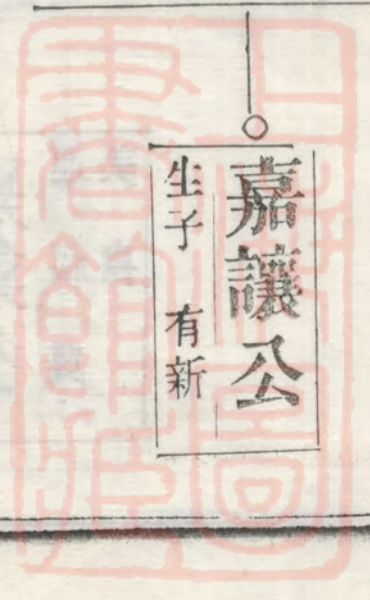 嘉讓公
生子 有新